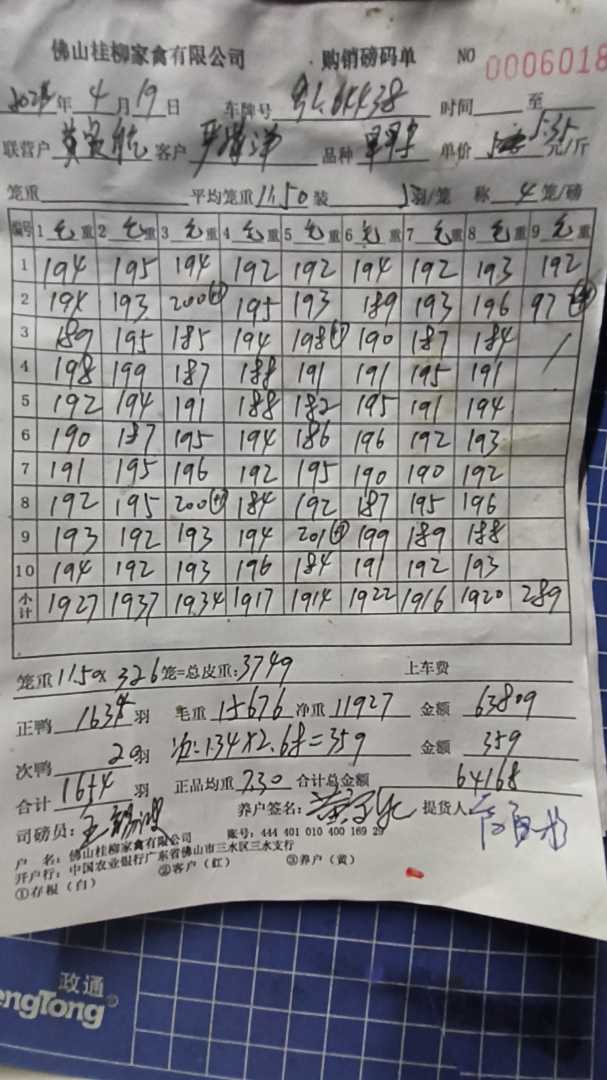 佛山桂柳家禽有限公司 购销磅码单 NO 0006018
年 4 月 19 日 车牌号 时间 至
联营户 客户 品种 单价 5.35 元/斤
笼重 平均笼重 11.50 装 5 羽/笼 称 4 笼/磅
编号 1 毛重 2 毛重 3 毛重 4 毛重 5 毛重 6 毛重 7 毛重 8 毛重 9 毛重
1 194 195 194 192 192 194 192 193 192
2 194 193 200 195 193 189 193 196 97
3 189 195 185 194 198 190 187 184 /
4 198 199 187 188 191 191 195 191
5 192 194 191 188 182 195 191 194
6 190 187 195 194 186 196 192 193
7 191 195 196 192 195 190 190 192
8 192 195 200 184 192 187 195 196
9 193 192 193 194 201 199 189 188
10 194 192 193 196 184 191 192 193
小计 1927 1937 1934 1917 1914 1922 1916 1920 289
笼重 11.50 x 326 笼=总皮重: 3749 上车费
正鸭 1634 羽 毛重 15676 净重 11927 金额 63809
次鸭 20 羽 次: 134 x 2.68 = 359 金额 359
合计 1654 羽 正品均重 7.30 合计总金额 64168
司磅员: 养户签名: 提货人
户 名: 佛山桂柳家禽有限公司 账号: 444 401 010 400 169 29
开户行: 中国农业银行广东省佛山市三水区三水支行
①存根(白) ②客户(红) ③养户(黄)
政通
engTong®